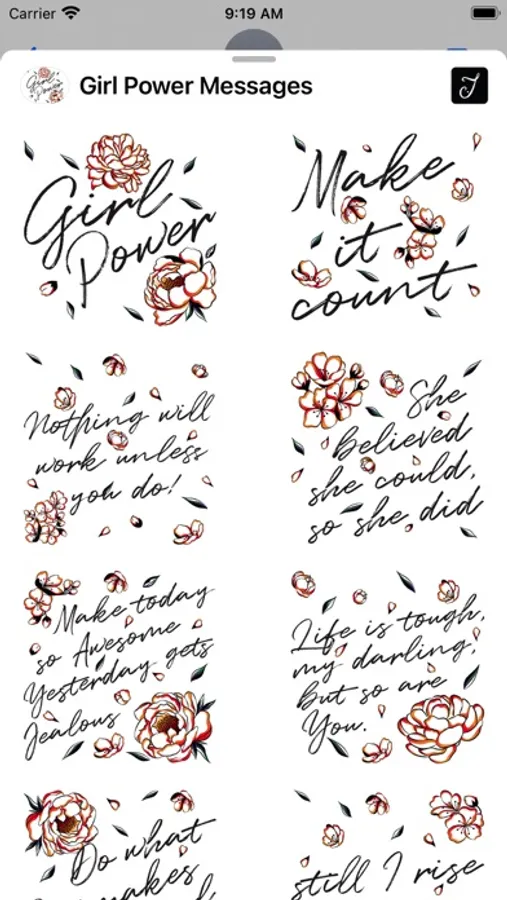 Carrier 9:19 AM
Girl Power
Girl Power Messages
J
Girl
Power
Make
it
count
Nothing will
work unless
you do!
She
Believed
she could,
so she did
Make today
so Awesome
Yesterday gets
Jealous
Life is tough,
my darling,
but so are
You.
Do what
makes
still I rise